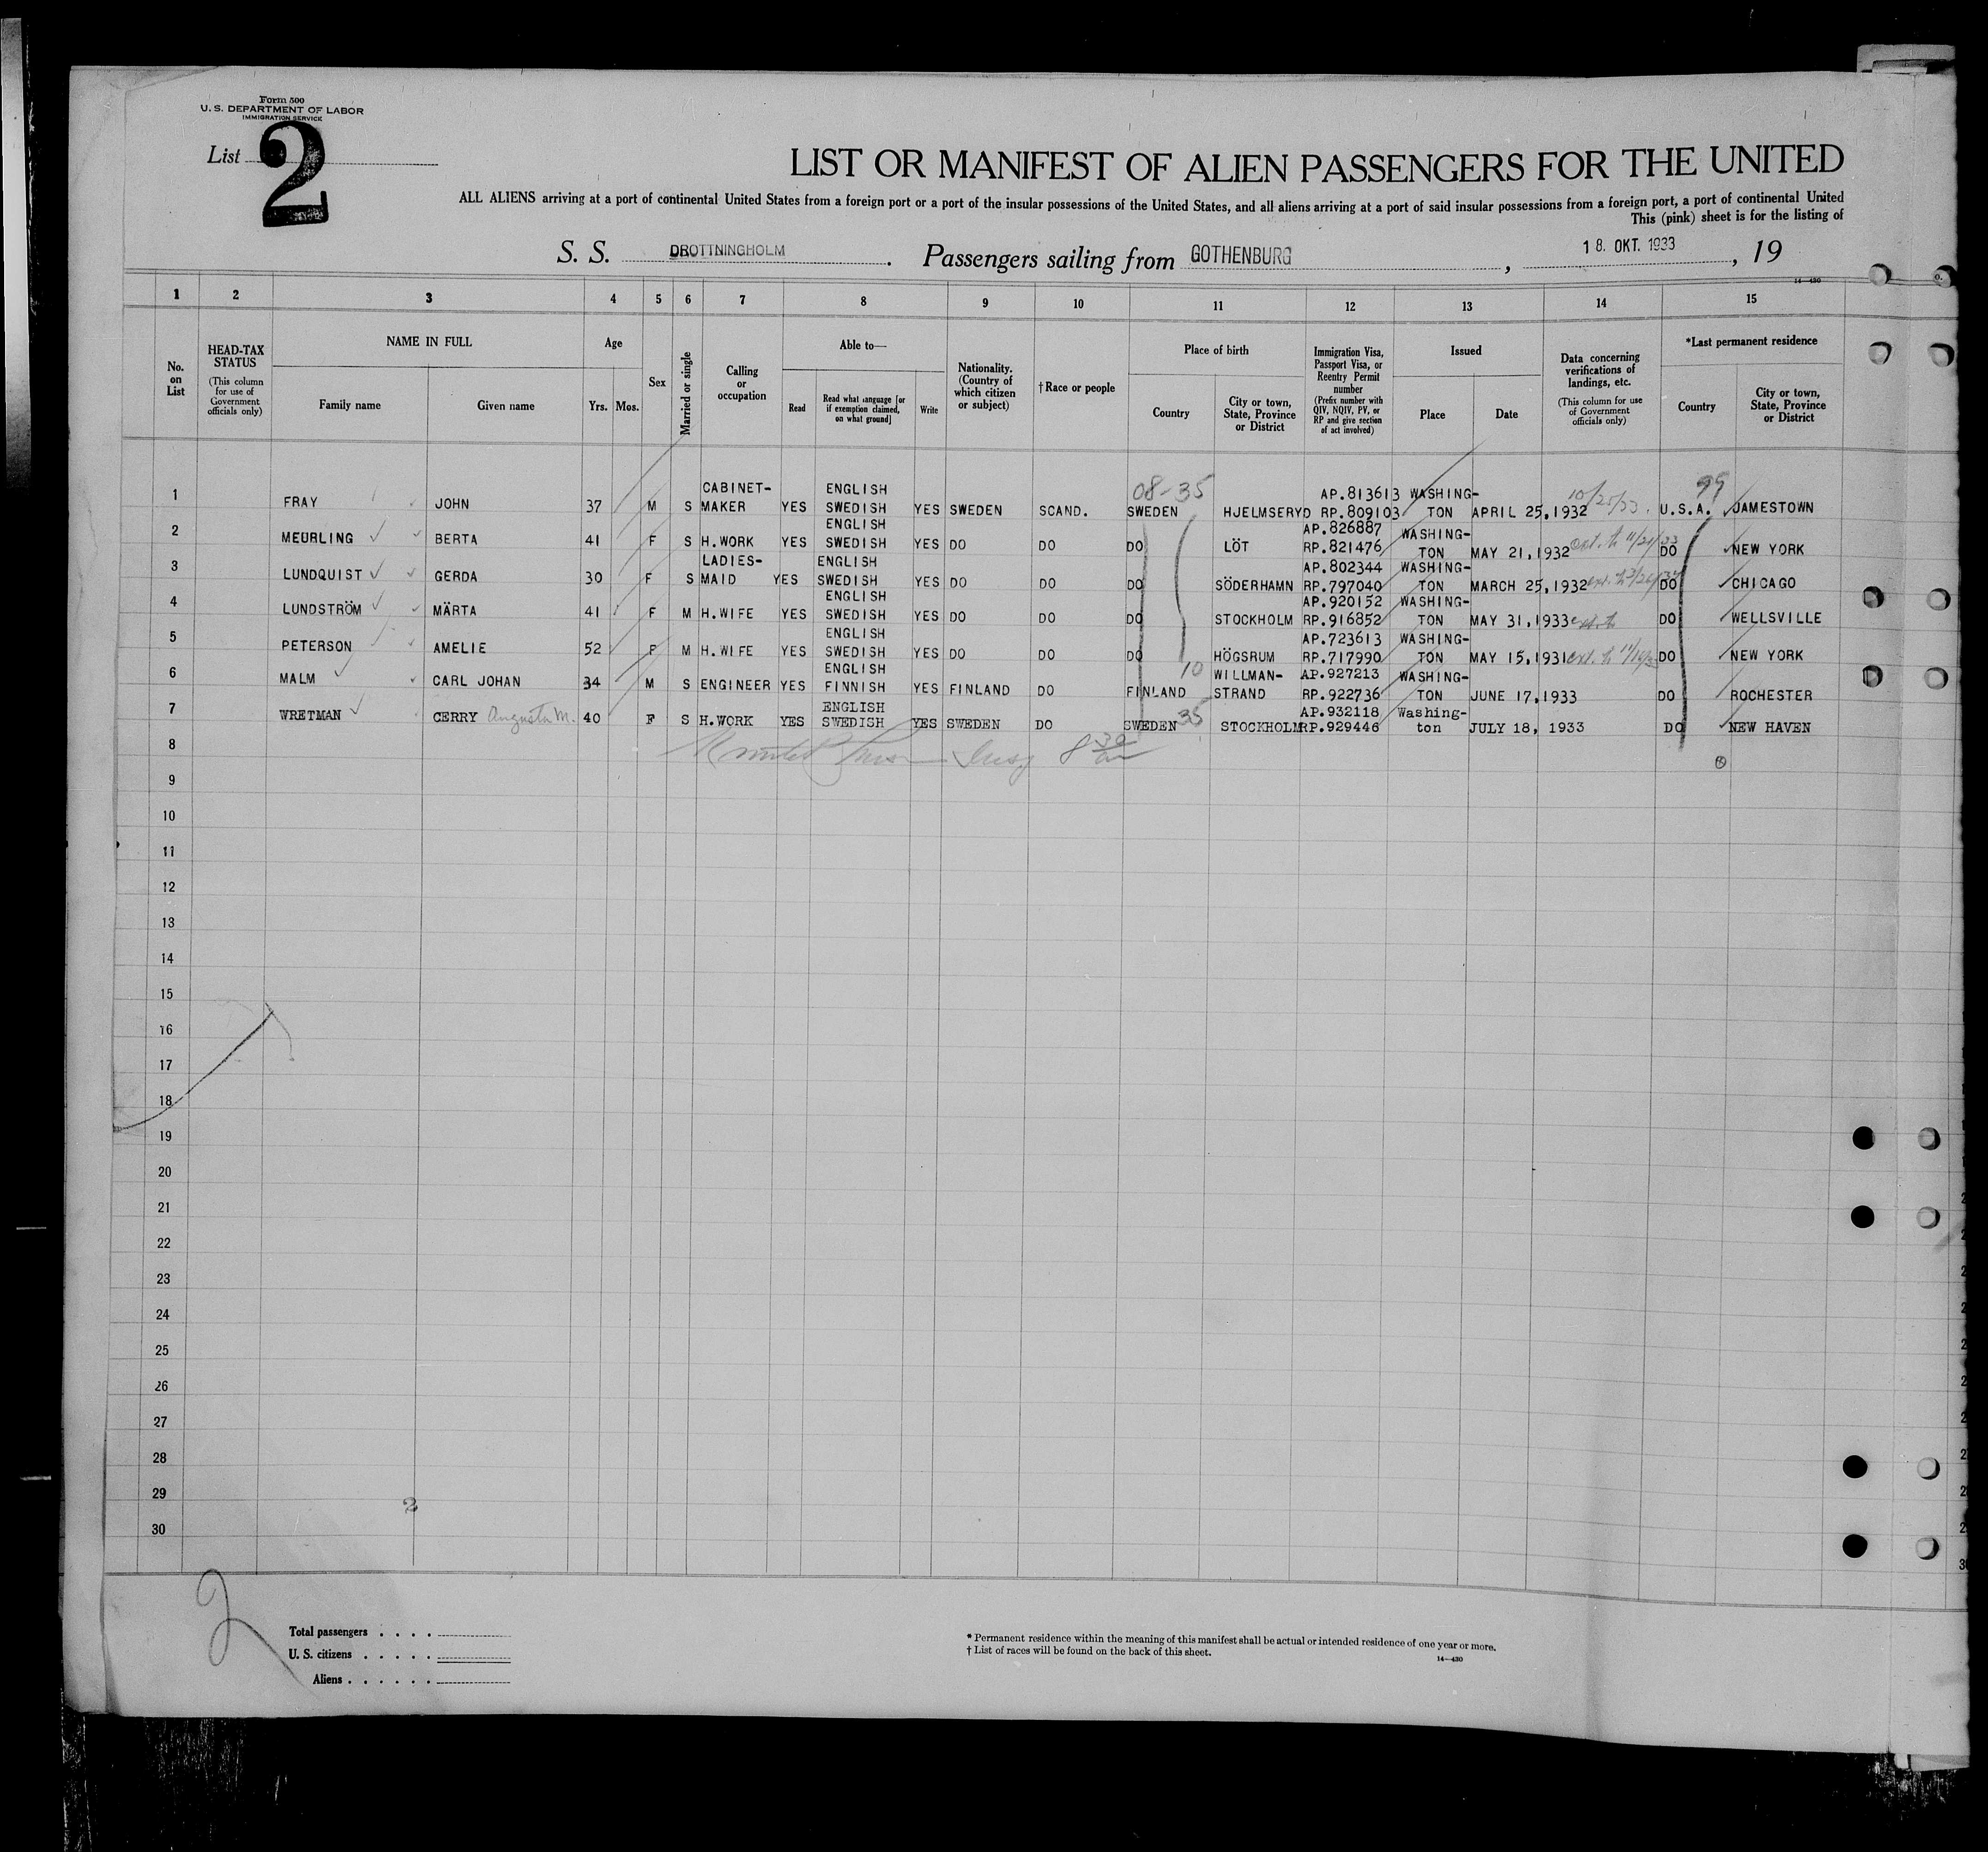 Form 500
U. S. DEPARTMENT OF LABOR
IMMIGRATION SERVICE
List 2
LIST OR MANIFEST OF ALIEN PASSENGERS FOR THE UNITED
ALL ALIENS arriving at a port of continental United States from a foreign port or a port of the insular possessions of the United States, and all aliens arriving at a port of said insular possessions from a foreign port, a port of continental United
This (pink) sheet is for the listing of
S. S. DROTTNINGHOLM. Passengers sailing from GOTHENBURG, 18. OKT. 1933, 19
14—430
1 2 3 4 5 6 7 8 9 10 11 12 13 14 15
No. on List
HEAD-TAX STATUS (This column for use of Government officials only)
NAME IN FULL
Family name
Given name
Age
Yrs. Mos.
Sex
Married or single
Calling or occupation
Able to—
Read
Read what language [or if exemption claimed, on what ground]
Write
Nationality. (Country of which citizen or subject)
†Race or people
Place of birth
Country
City or town, State, Province or District
Immigration Visa, Passport Visa, or Reentry Permit number (Prefix number with QIV, NQIV, PV, or RP and give section of act involved)
Issued
Place
Date
Data concerning verifications of landings, etc. (This column for use of Government officials only)
*Last permanent residence
Country
City or town, State, Province or District
08-35 99
CABINET- ENGLISH AP.813613 WASHING-
1 FRAY JOHN 37 M S MAKER YES SWEDISH YES SWEDEN SCAND. SWEDEN HJELMSERYD RP.809103 TON APRIL 25,1932 10/25/33 U.S.A. JAMESTOWN
ENGLISH AP.826887 WASHING-
2 MEURLING BERTA 41 F S H.WORK YES SWEDISH YES DO DO DO LÖT RP.821476 TON MAY 21,1932 ext. to 11/21/33 DO NEW YORK
LADIES- ENGLISH AP.802344 WASHING-
3 LUNDQUIST GERDA 30 F S MAID YES SWEDISH YES DO DO DO SÖDERHAMN RP.797040 TON MARCH 25,1932 DO CHICAGO
ENGLISH AP.920152 WASHING-
4 LUNDSTRÖM MÄRTA 41 F M H.WIFE YES SWEDISH YES DO DO DO STOCKHOLM RP.916852 TON MAY 31,1933 ext. to DO WELLSVILLE
ENGLISH AP.723613 WASHING-
5 PETERSON AMELIE 52 F M H.WIFE YES SWEDISH YES DO DO DO HÖGSRUM RP.717990 TON MAY 15,1931 ext. to DO NEW YORK
ENGLISH 10 WILLMAN- AP.927213 WASHING-
6 MALM CARL JOHAN 34 M S ENGINEER YES FINNISH YES FINLAND DO FINLAND STRAND RP.922736 TON JUNE 17,1933 DO ROCHESTER
ENGLISH 35 AP.932118 Washing-
7 WRETMAN CERRY Augusta M. 40 F S H.WORK YES SWEDISH YES SWEDEN DO SWEDEN STOCKHOLM RP.929446 ton JULY 18, 1933 DO NEW HAVEN
8
9
10
11
12
13
14
15
16
17
18
19
20
21
22
23
24
25
26
27
28
29
30
2
2
Total passengers . . . .
U. S. citizens . . . . .
Aliens . . . . . .
* Permanent residence within the meaning of this manifest shall be actual or intended residence of one year or more.
† List of races will be found on the back of this sheet.
14—430